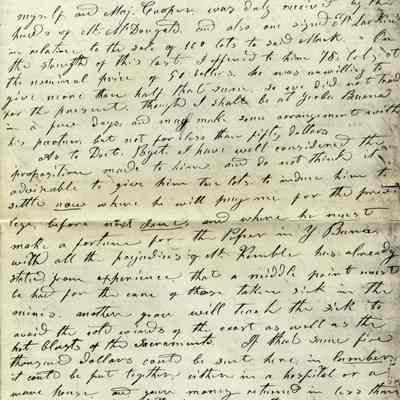 myself and Maj. Cooper was duly received by the
hands of Mr. McDougald, and also one signed T. Larkin
in relation to the sale of 100 lots to said Mark. On
the strength of this last I offered to him 78 lots at
the nominal price of 50 dollars. he was unwilling to
give more than half that sum, so we did not trade
for the present, though I shall be at Yerba Buena
in a few days, and may make some arrangement with
his partner but not for less than fifty dollars
As to Doct. I have well considered the
proposition made to him and do not think it
advisable to give him ten lots to induce him to
settle now where he will pay me for the privi
lege, before next June, and where he must
make a fortune for the Paper in Y Buena
with all the prejudices of Mr Kemble has already
stated from experience that a middle point must
be had for the care of those taken sick in the
mines. another year will teach the sick to
avoid the cold winds of the coast as well as the
hot blasts of the Sacramento. If that some five
thousand dollars could be sent here, in lumber
it could be put together, either in a hospital or a
ware house and your money returned in less than